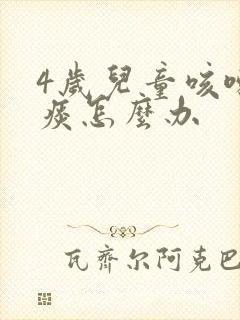 4歲兒童咳嗽
痰怎麼办
瓦齊尔阿克巴